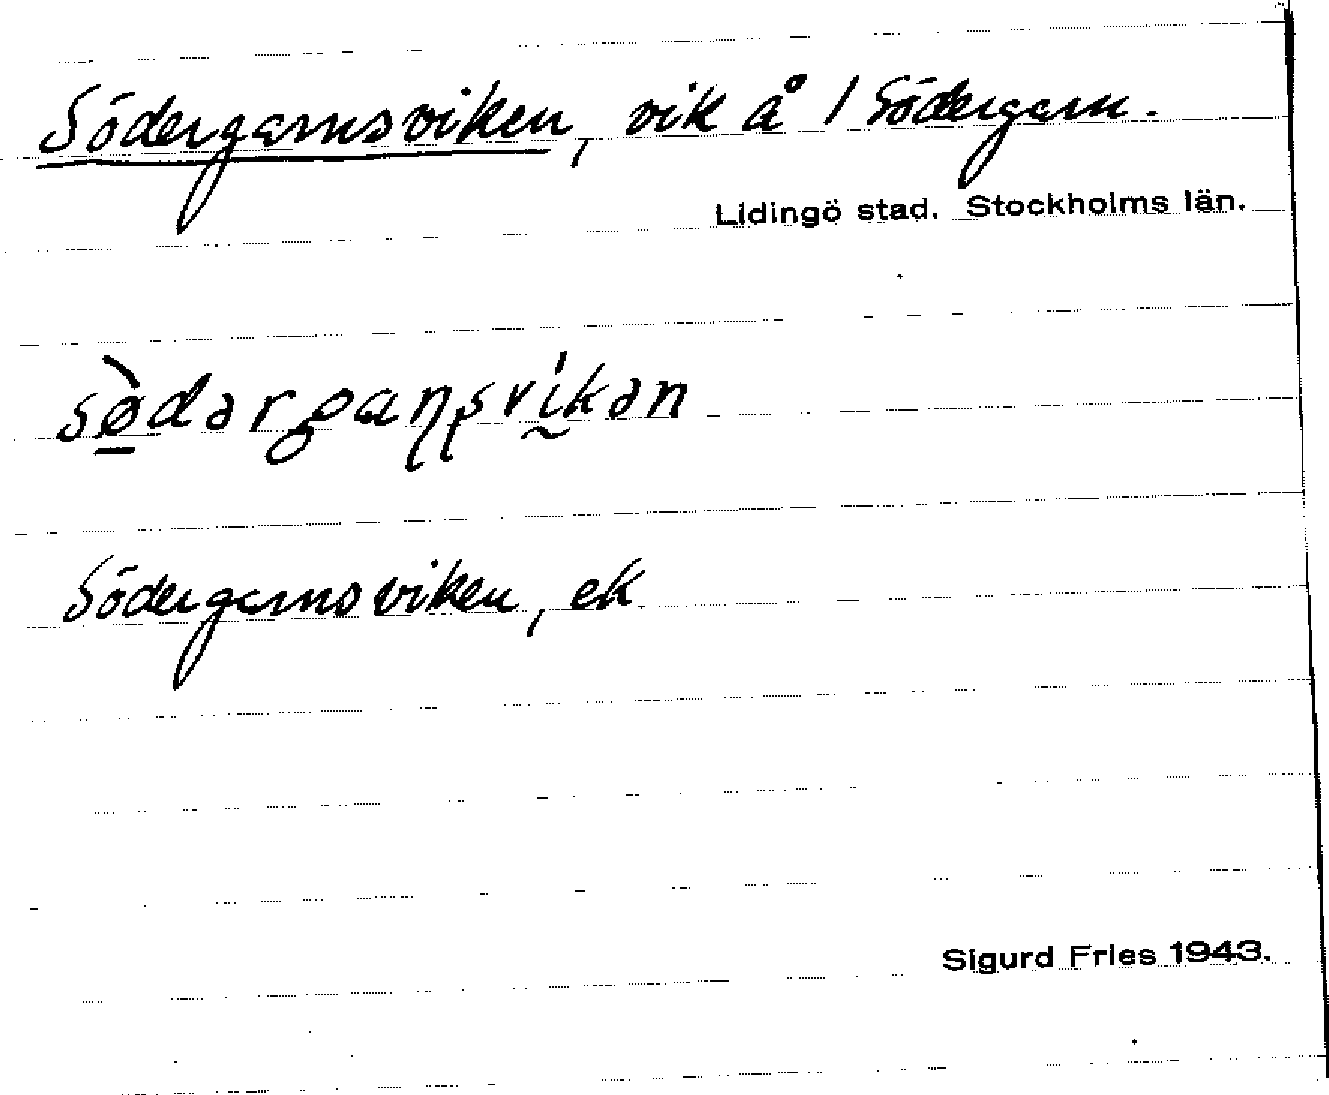 Södergarnsviken, vik å 1 Södergarn.
Lidingö stad. Stockholms län.
sø̀dərgaɳʂvíkən
Södergarnsviken, ek
Sigurd Fries 1943.